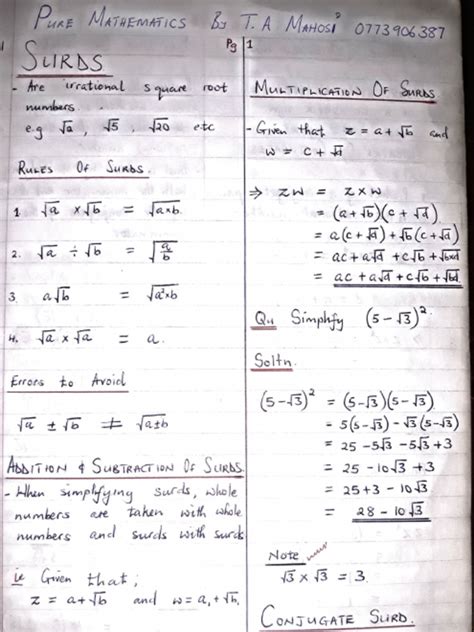 PURE MATHEMATICS By T. A MAHOSI 0773906387
Pg 1
SURDS
- Are irrational square root
numbers.
e.g √2, √5, √20 etc
RULES OF SURDS.
1. √a × √b = √a×b
2. √a ÷ √b = √a/b
3. a√b = √a²×b
4. √a × √a = a.
Errors to Avoid
√a ± √b ≠ √a±b
ADDITION & SUBTRACTION OF SURDS
- When simplifying surds, whole
numbers are taken with whole
numbers and surds with surds
ie Given that;
z = a+√b and w = a, + √b,
MULTIPLICATION OF SURDS
- Given that z = a+√b and
w = c + √d
⇒ zw = z × w
= (a+√b)(c + √d)
= a(c + √d) + √b(c + √d)
= ac + a√d + c√b + √b×d
= ac + a√d + c√b + √bd
Q.1 Simplify (5 - √3)².
Soltn.
(5-√3)² = (5-√3)(5-√3)
= 5(5-√3) - √3(5-√3)
= 25 - 5√3 - 5√3 + 3
= 25 - 10√3 + 3
= 25+3 - 10√3
= 28 - 10√3
Note
√3 × √3 = 3.
CONJUGATE SURD.